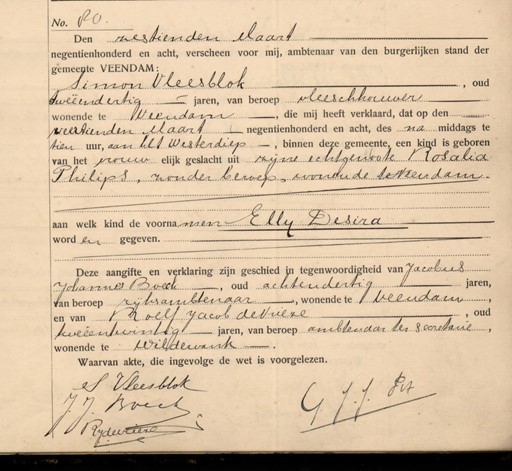 No. 80.
Den zestienden Maart
negentienhonderd en acht, verscheen voor mij, ambtenaar van den burgerlijken stand der
gemeente VEENDAM:
Simon Vleesblok, oud
tweeëndertig jaren, van beroep vleeschhouwer
wonende te Veendam, die mij heeft verklaard, dat op den
veertienden Maart negentienhonderd en acht, des na middags te
tien uur, aan het Westerdiep, binnen deze gemeente, een kind is geboren
van het vrouwelijk geslacht uit zijne echtgenoote Rosalia
Philips, zonder beroep, wonende te Veendam.
aan welk kind de voornamen Elly Desira
worden gegeven.
Deze aangifte en verklaring zijn geschied in tegenwoordigheid van Jacobus
Johannes Boek, oud achtendertig jaren,
van beroep rijksambtenaar, wonende te Veendam
en van Roelf Jacob de Vrieze, oud
tweeëntwintig jaren, van beroep ambtenaar ter secretarie,
wonende te Wildervank.
Waarvan akte, die ingevolge de wet is voorgelezen.
S Vleesblok
J. J. Boek
RJdeVrieze